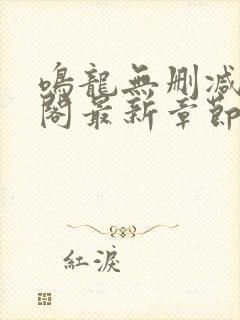 鳴龍無刪减
閣最新章節
紅淚